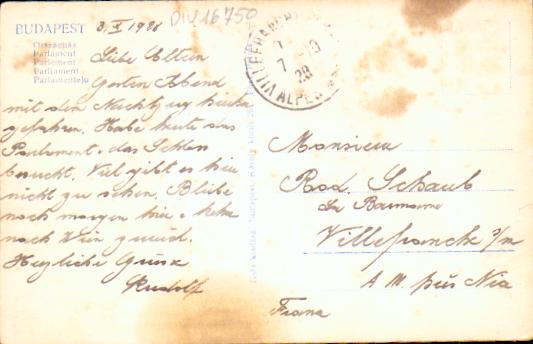 BUDAPEST 3. X 1928 DIV 16750
Országház
Parlament
Parlement
Parliament
Parlamentejo
Liebe Eltern
Gestern Abend
mit dem Nachtzug hieher
gefahren. Habe heute das
Parlament & das Schloss
besucht. Viel gibt es hier
nicht zu sehen. Bleibe
noch morgen hier & kehre
nach Wien zurück.
Herzliche Grüsse
Rudolf
VILLEFRANCHE
7
28
ALPES
Monsieur
Rod. Schaub
Villefranche s/m
A. M. près Nice
France